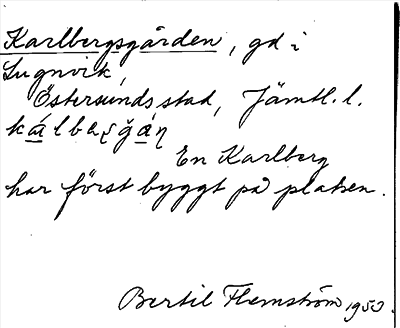 Karlbergsgården, gd i
Lugnvik,
Östersunds stad, Jämtl. l.
En Karlberg
har först byggt på platsen.
Bertil Flemström 1953.